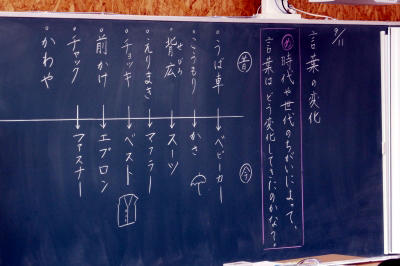 9/11
言葉の変化
め 時代や世代のちがいによって、
言葉はどう変化してきたのかな?
昔 今
・うば車→ベビーカー
・こうもり→かさ
・背広→スーツ
せびろ
・えりまき→マフラー
・チョッキ→ベスト
・前かけ→エプロン
・チャック→ファスナー
・かわや